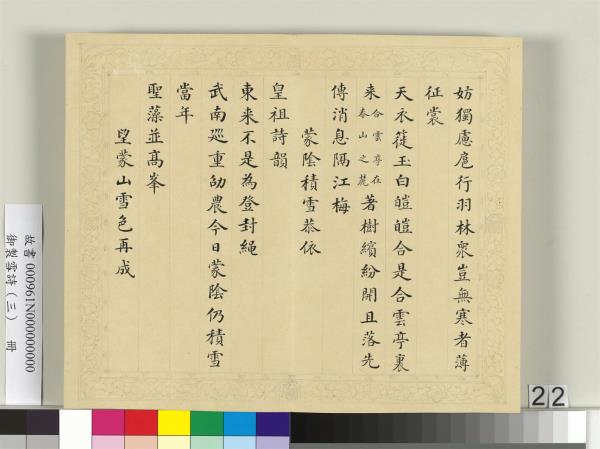 妨獨慮扈行羽林眾豈無寒者薄
征裳
天衣蓰玉白皚皚合是合雲亭裏
来合雲亭在泰山之麓著樹繽紛開且落先
傳消息隔江梅
蒙陰積雪恭依
皇祖詩韻
東来不是為登封繩
武南巡重劭農今日蒙陰仍積雪
當年
聖藻並高峯
望蒙山雪色再成
故書 000961N000000000
御製雪詩（三） 冊
22